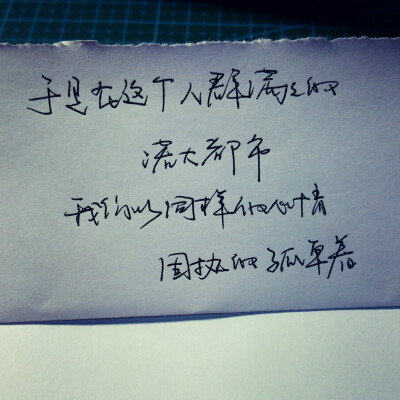 于是在这个人群满满的
诺大都市
我们以同样的心情
固执的孤单着